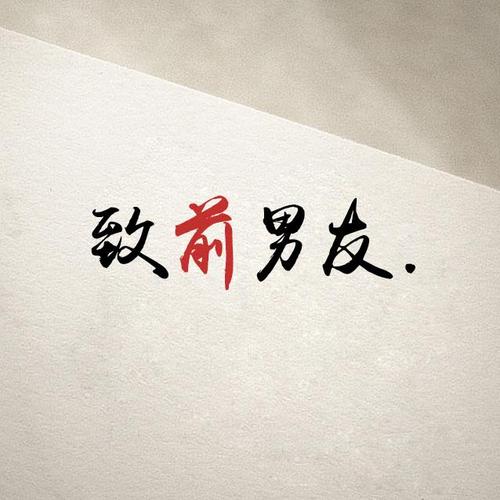 致前男友.